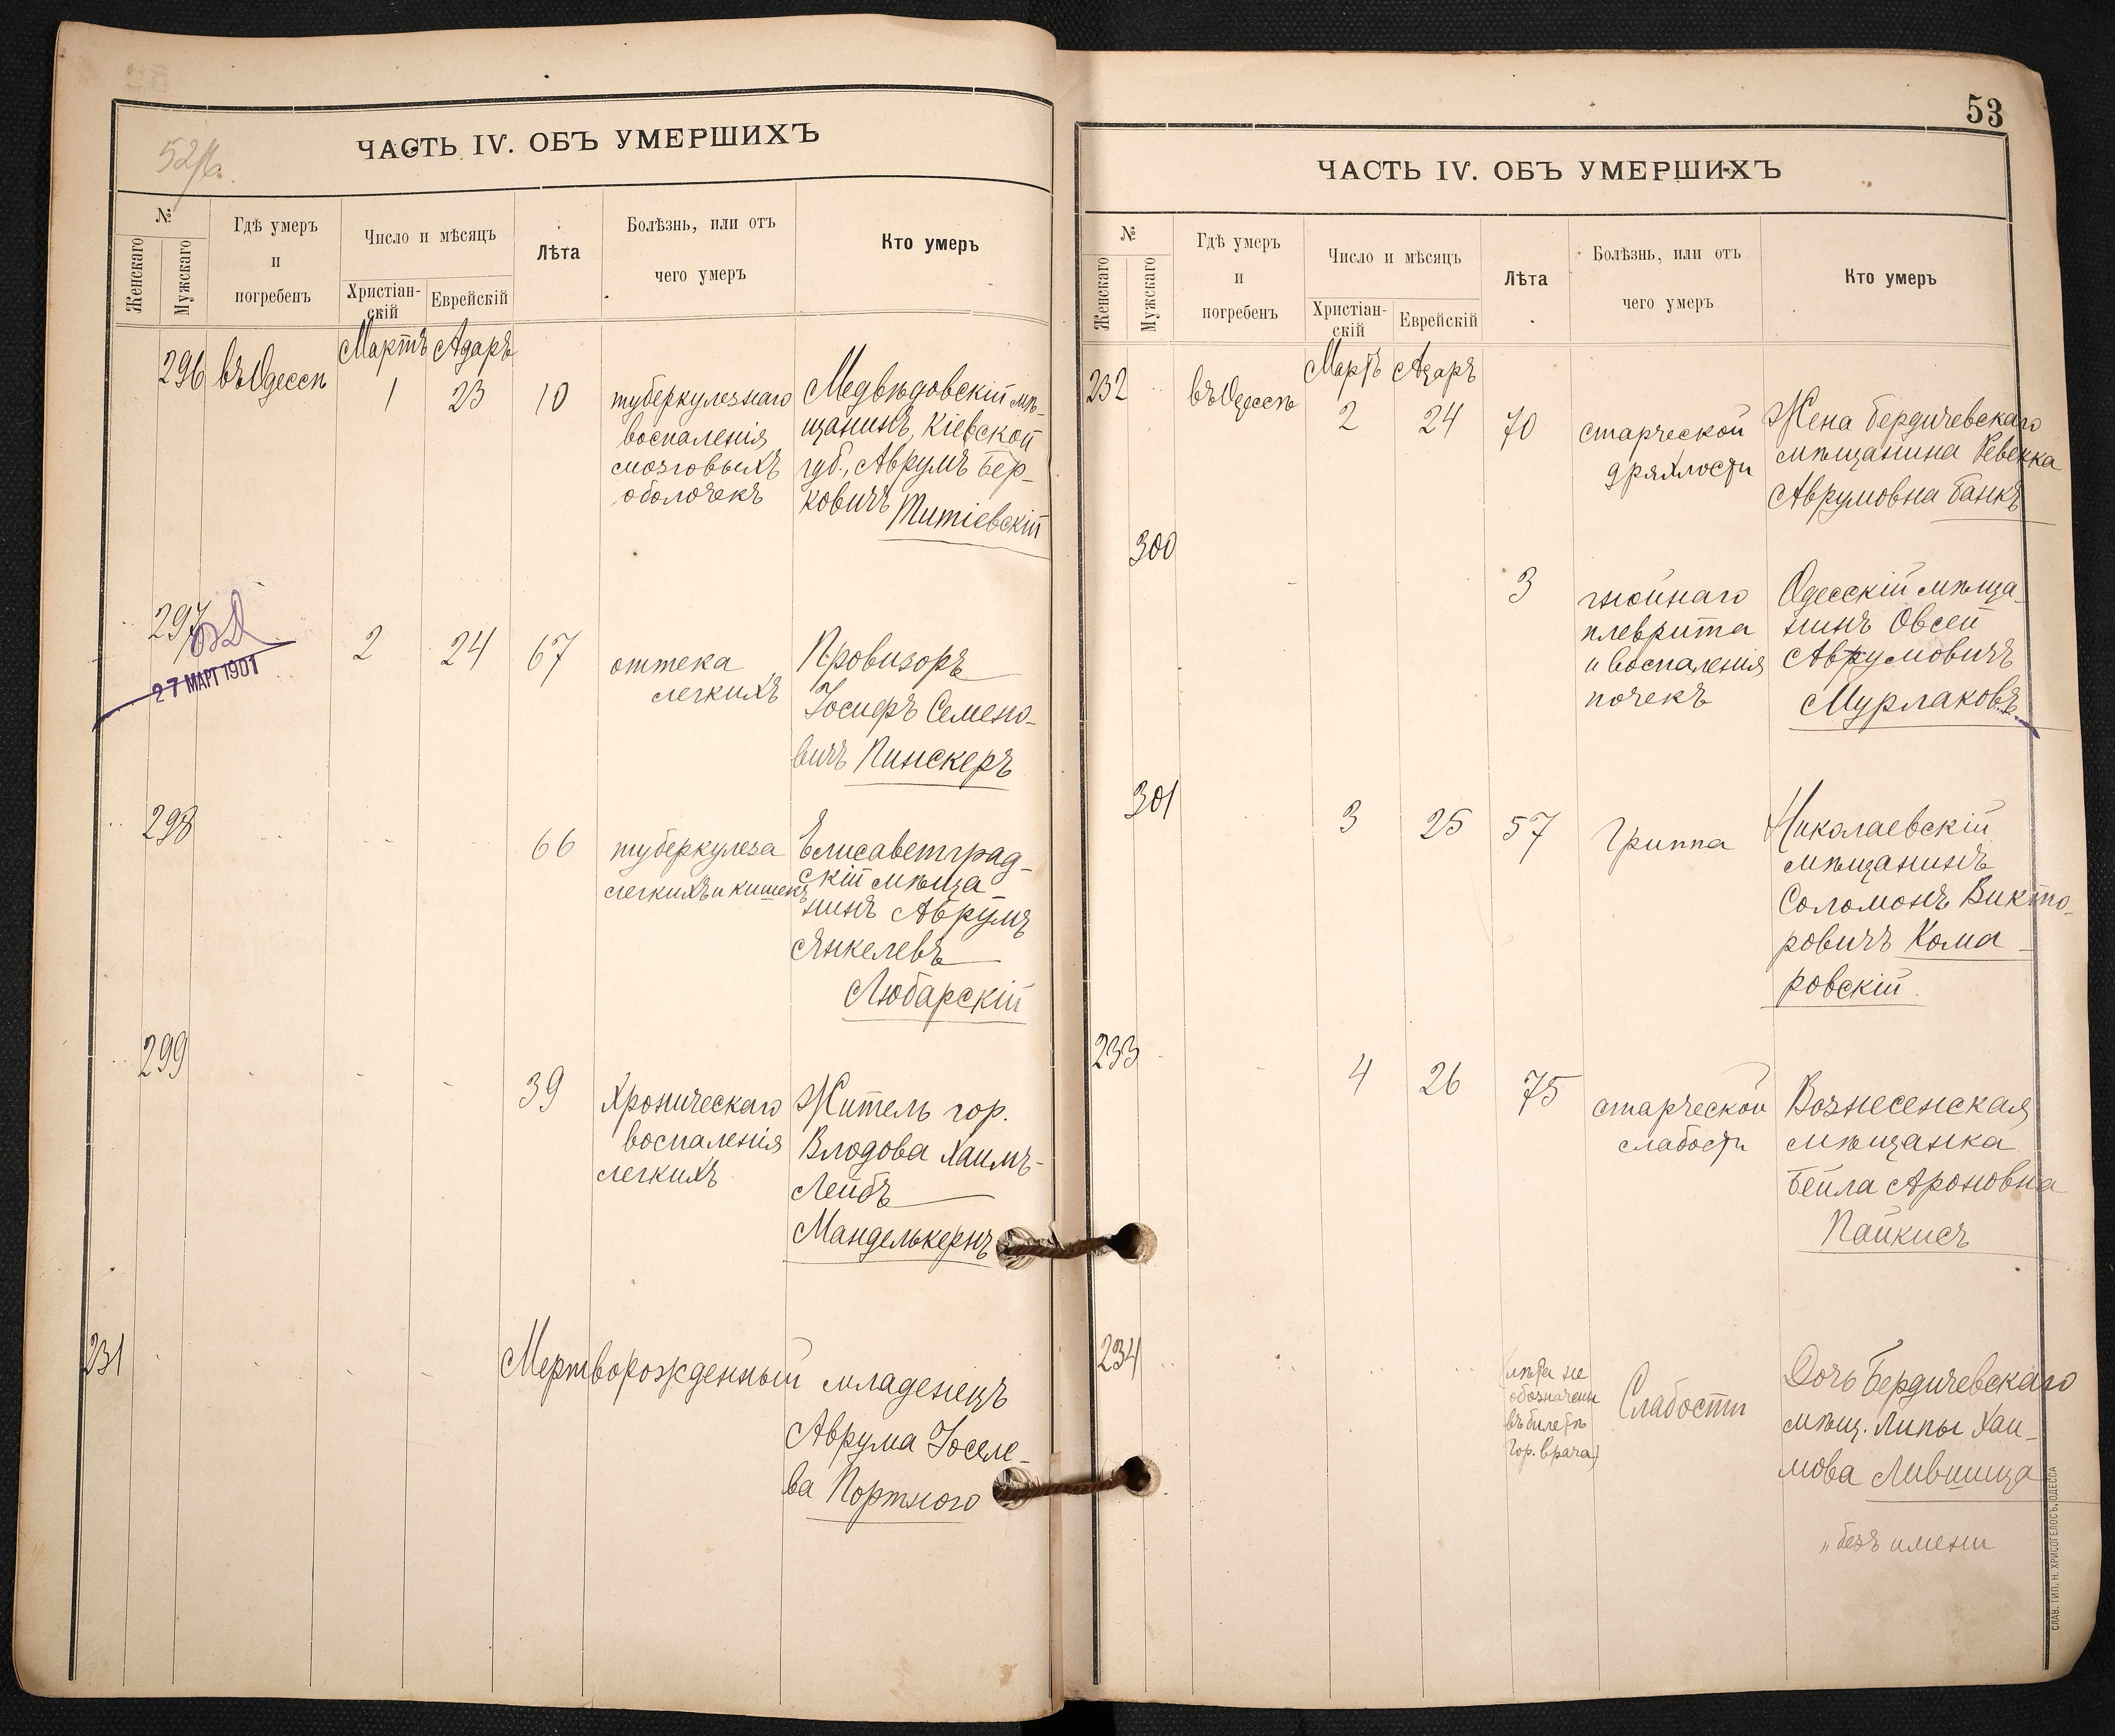 52/б.
ЧАСТЬ IV. ОБЪ УМЕРШИХЪ
№
Женскаго
Мужскаго
Гдѣ умеръ
и
погребенъ
Число и мѣсяцъ
Христіан-
скій
Еврейскій
Лѣта
Болѣзнь, или отъ
чего умеръ
Кто умеръ
Мартъ Адаръ
296 въ Одессѣ 1 23 10
туберкулезнаго
воспаленія
мозговыхъ
оболочекъ
Медвѣдовскій мѣ-
щанинъ, Кіевской
губ., Аврумъ Бер-
ковичъ
Титіевскій
297
27 МАРТ 1901
2 24 67
оттека
легкихъ
Провизоръ
Іосифъ Семено-
вичъ Пинскеръ
298 66
туберкулеза
легкихъ и кишекъ
Елисаветград-
скій мѣща
нинъ Аврумъ
Янкелевъ
Любарскій
299 39
Хроническаго
воспаленія
легкихъ
Житель гор.
Влодова Хаимъ-
Лейбъ
Манделькернъ
231
Мертворожденный младенецъ
Аврума Іоселе-
ва Портного
53
ЧАСТЬ IV. ОБЪ УМЕРШИХЪ
№
Женскаго
Мужскаго
Гдѣ умеръ
и
погребенъ
Число и мѣсяцъ
Христіан-
скій
Еврейскій
Лѣта
Болѣзнь, или отъ
чего умеръ
Кто умеръ
Мартъ Адаръ
232 въ Одессѣ 2 24 70
старческой
дряхлости
Жена бердичевскаго
мѣщанина Ревекка
Аврумовна Банкъ
300 3
гнойнаго
плеврита
и воспаленія
почекъ
Одесскій мѣща-
нинъ Овсей
Аврумовичъ
Мурлаковъ
301 3 25 57
Гриппа
Николаевскій
мѣщанинъ
Соломонъ Викто-
ровичъ Кома-
ровскій
233 4 26 75
старческой
слабости
Вознесенская
мѣщанка
Бейла Ароновна
Пайкисъ
234
(лѣта не
обозначены
въ билетѣ
гор. врача)
Слабости
Дочь Бердичевскаго
мѣщ. Липы Хаи-
мова Лившица
"безъ имени
СЛАВ. ТИП. Н. ХРИСОГЕЛОСЪ, ОДЕССА